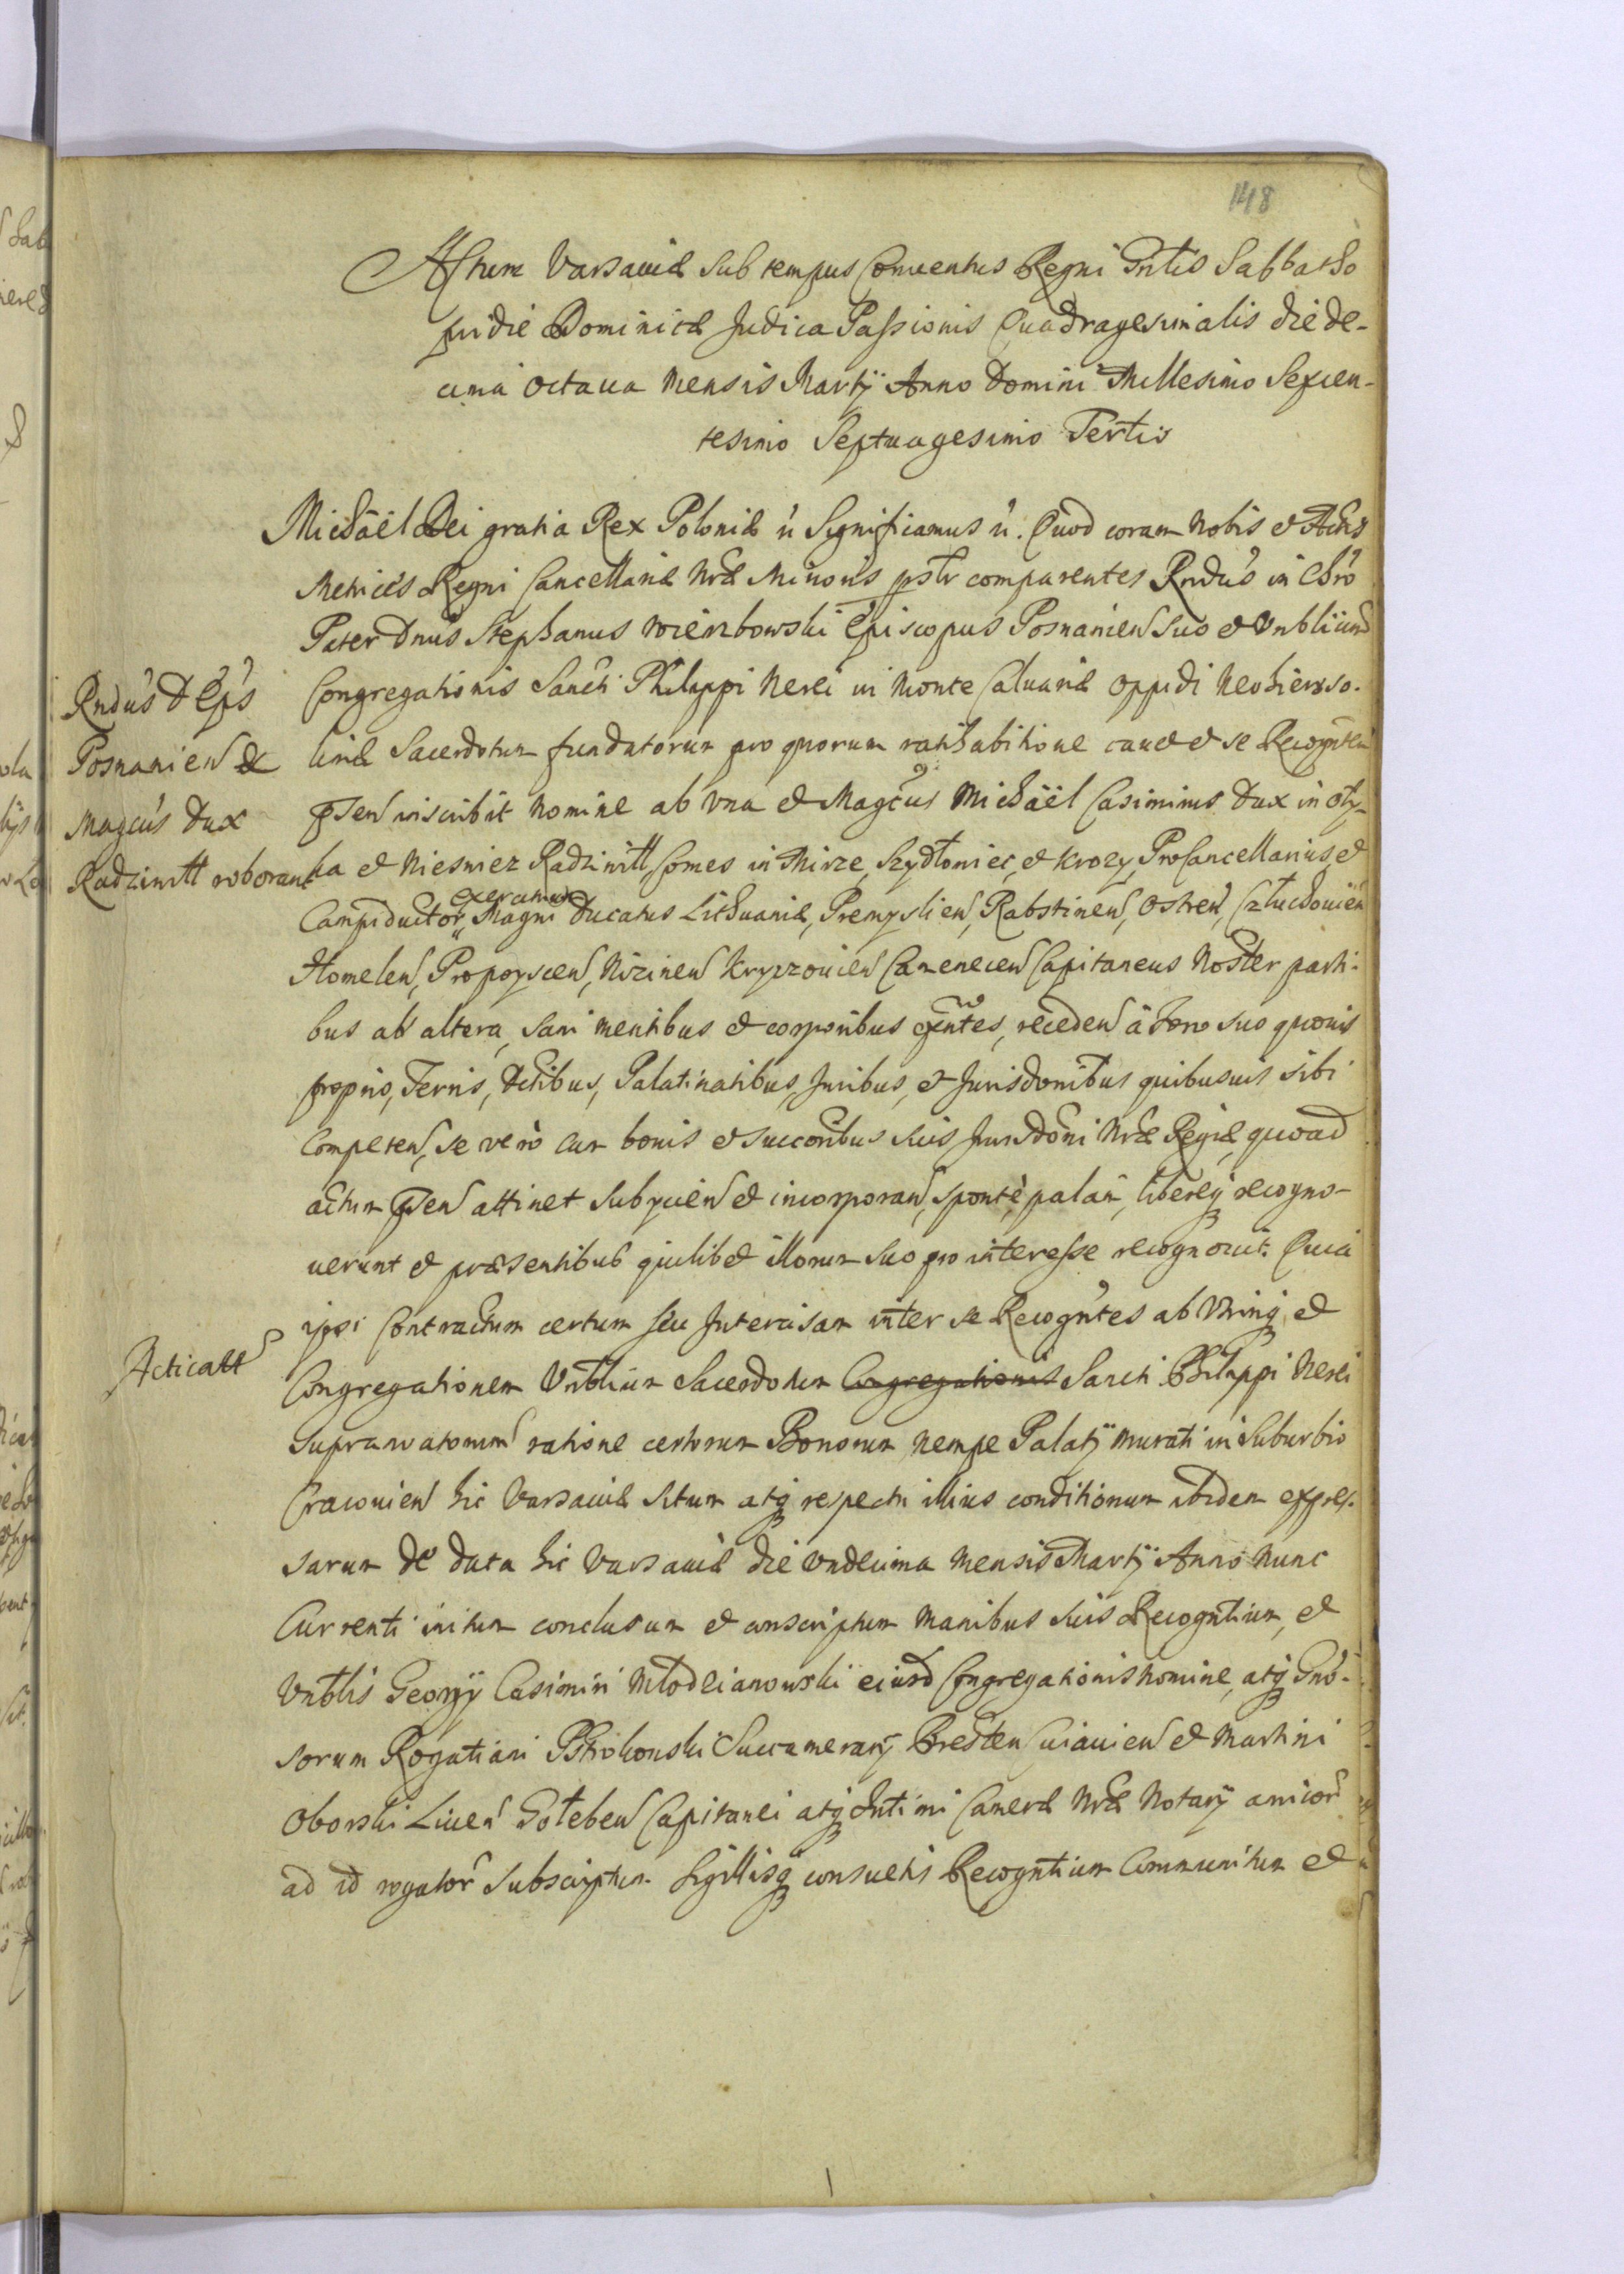 148
Actum Varsaviæ sub tempus Conventus Regni Gnlis Sabbatho
pridie Dominicæ Judica Passionis Quadragesimalis die de-
cima octaua mensis Martij Anno Domini Millesimo Sexcen-
tesimo Septuagesimo Tertio
Michaël Dei gratia Rex Poloniæ Significamus Quod coram Nobis et Actis
Metrices Regni Cancellariæ Nræ Minoris psltr comparentes Rndus in Chro
Pater Dnus Stephanus Wierzbowski Episcopus Posnanien suo et Vnblium
Congregationis Sancti Philippi Nerei in Monte Caluariæ oppidi Neohieroso-
Rndus D Eps
limæ Sacerdotum fundatorum pro quorum ratihabitione cauet et se Recognten
Posnanien &
pnsen inscribit nomine ab vna et Magcus Michaël Casimirus Dux in Oły-
Magcus Dux
ka et Nieswiez Radziwiłł, Comes in Mirze, Szydłowiec, et Krozy, ProCancellarius, et
Radziwiłł roborant
exercituum
Campiductor Magni Ducatus Lithuaniæ, Premyslien, Rabstinen, Ostren, Człuchouien
Homelen, Propoyscen, Nizinen Kryczouien Camenecen Capitaneus Noster parti-
bus ab altera, sani mentibus et corporibus exntes, receden à foro suo quouis
proprio, Terris, Dctibus, Palatinatibus, Juribus, et Jurisdonibus quibusuis sibi
competen, se vero cum bonis et succoribus suis Jursdoni Nræ Regiæ, quoad
actum pnsen attinet subycien et incorporan, sponte, palam, libereq recogno-
uerunt et præsentibus quilibet illorum suo pro interesse recognoscit. Quia
ipsi Contractum certum seu Intercisam inter se Recogntes ab Vtrinq, et
Acticatt
Congregationem Vnblium Sacerdotum Congregationis Sancti Philippi Nerei
ratione certorum Bonorum nempe Palatij murati in Suburbio
Cracouien hic Varsauiæ situm atq respectu illius conditionum ibidem expres-
sarum de data hic Varsauiæ die vndecima mensis Martij Anno nunc
Currenti initum conclusum et conscriptum manibus suis Recogntium, et
Vnblis Georgij Casimiri Młodzianowski eiusd Congregationis nomine, atq Gnō-
sorum Rogatiani Pstrokonski Succamerarij Bresten Cuiauien et Martini
Oborski Liuen Gołeben Capitanei atq Intimi Cameræ Nræ Notarij amicor
ad id rogator subscriptum Sigillisq consuetis Recogntium Communitum et